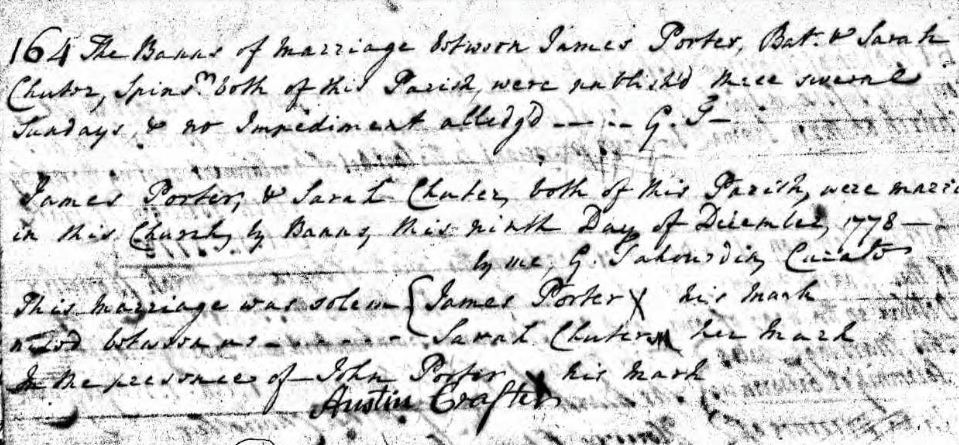 164 The Banns of Marriage between James Porter, Bat. & Sarah
Chuter, Spinsr. both of this Parish, were publish'd three several
Sundays, & no Impediment alledg'd — — -- G. T-
James Porter, & Sarah Chuter, both of this Parish, were marri
in this Church, by Banns, this ninth Day of December, 1778 —
by me, G. Tahourdin, Curate
This Marriage was solem- { James Porter X his Mark
nized between us - - - - - - Sarah Chuter X her Mark
In the presence of - John Porter X his Mark
Austin Crafter